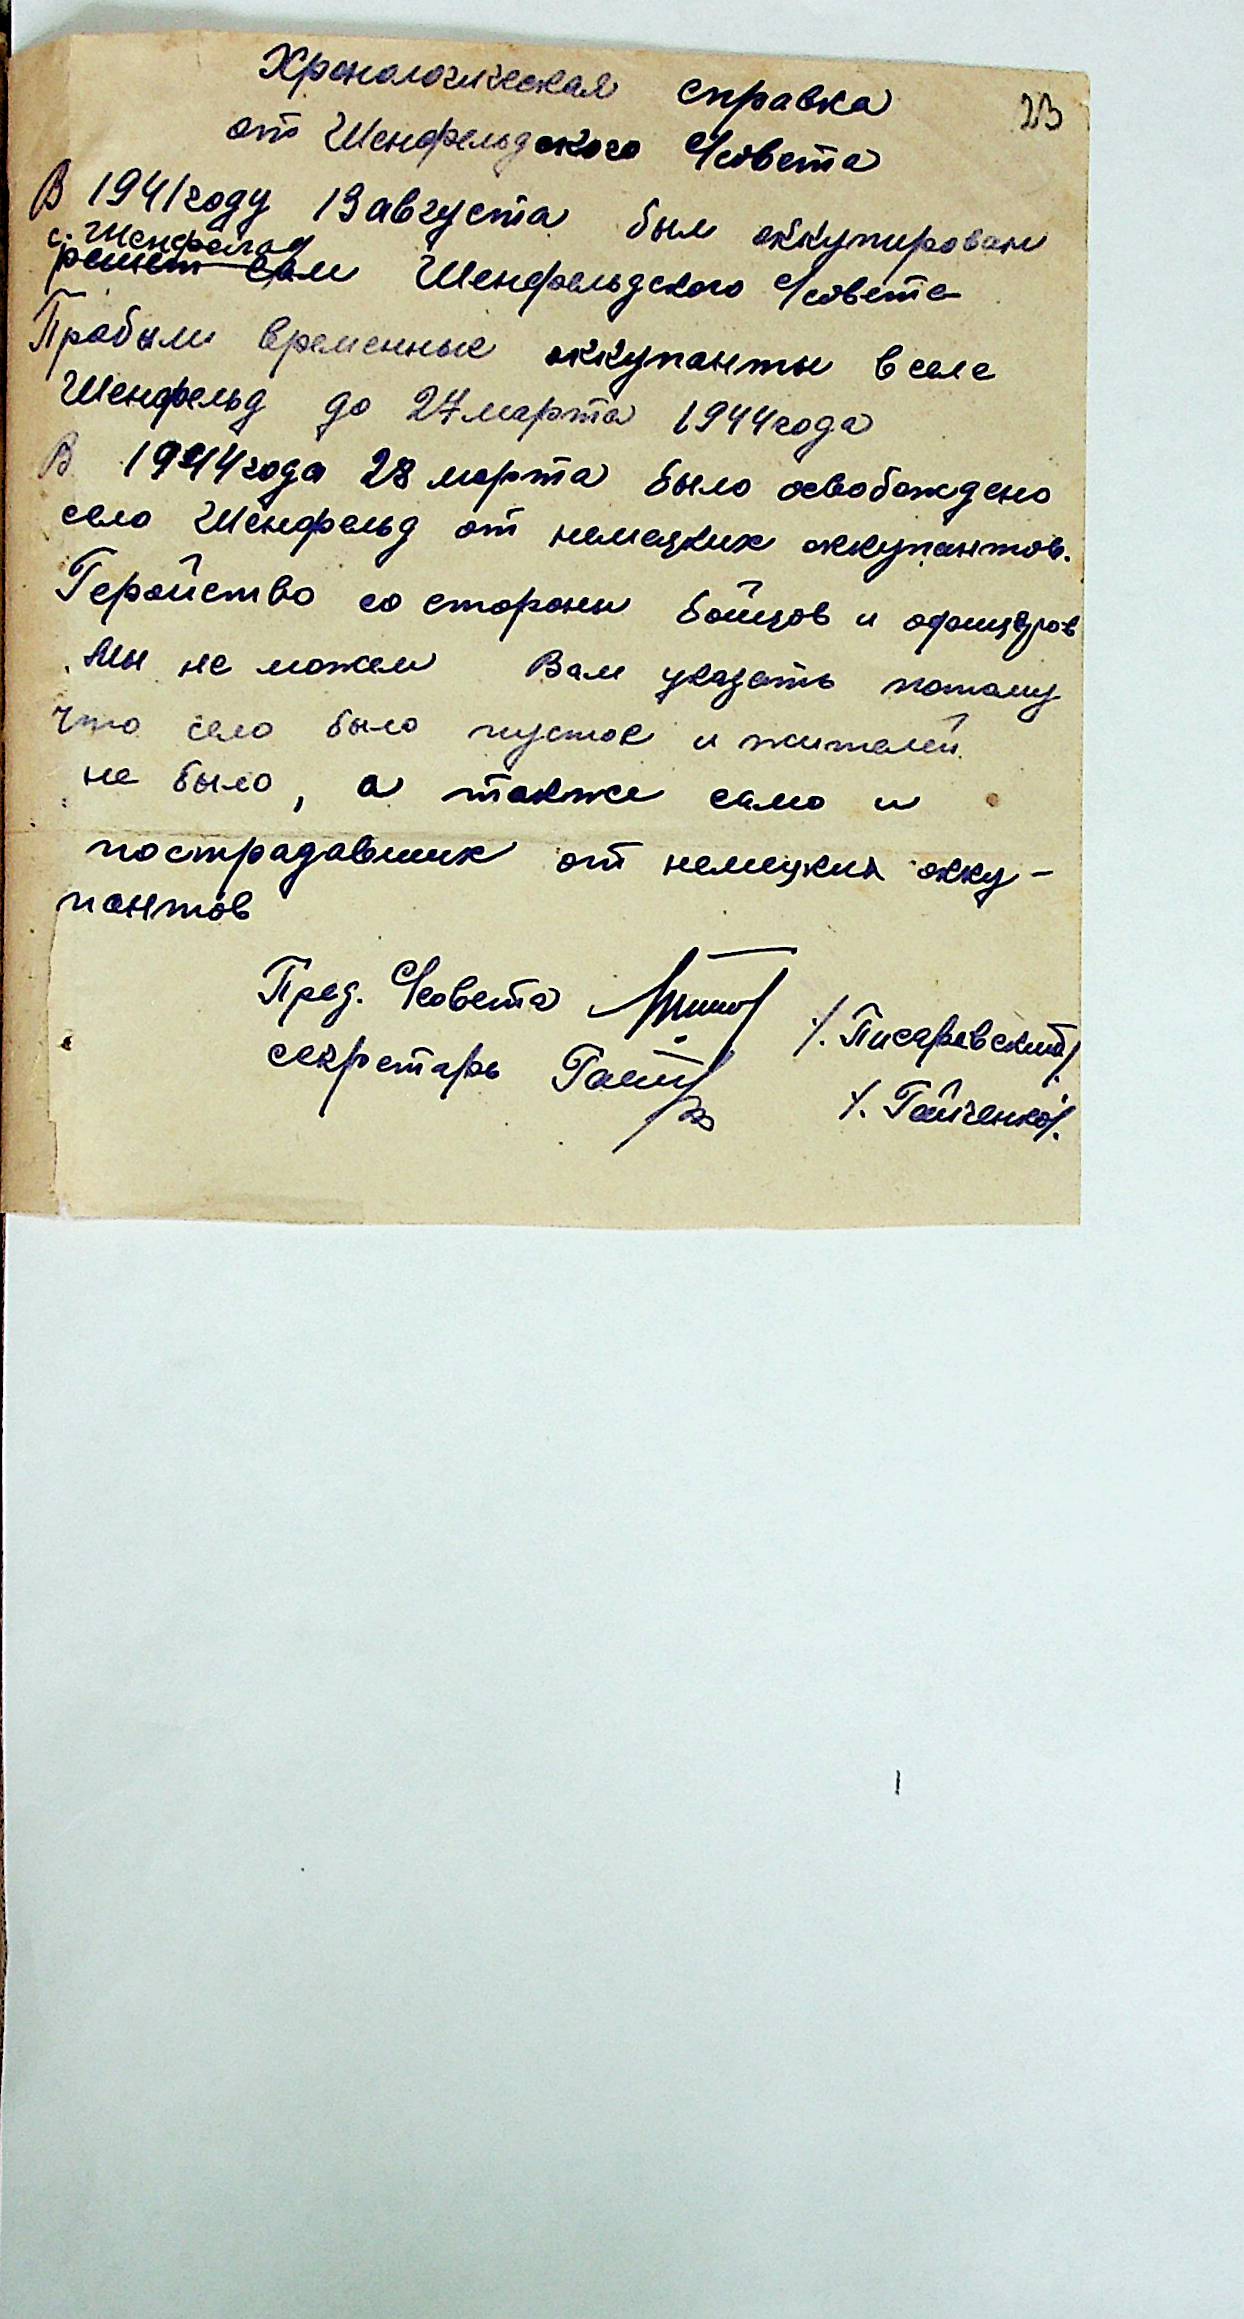 23
Хронологическая справка
от Шенфельдского С/совета
В 1941 году 13 августа был оккупирован
с. Шенфельд
Шенфельдского С/совета
Пробыли временные оккупанты в селе
Шенфельд до 27 марта 1944 года
В 1944 года 28 марта было освобождено
село Шенфельд от немецких оккупантов.
Геройство со стороны бойцов и офицеров
Мы не можем Вам указать потому
что село было пустое и жителей
не было, а также само и
пострадавших от немецких окку-
пантов
Пред. С/совета /. Писаревский/.
секретарь /. Гайченко/.